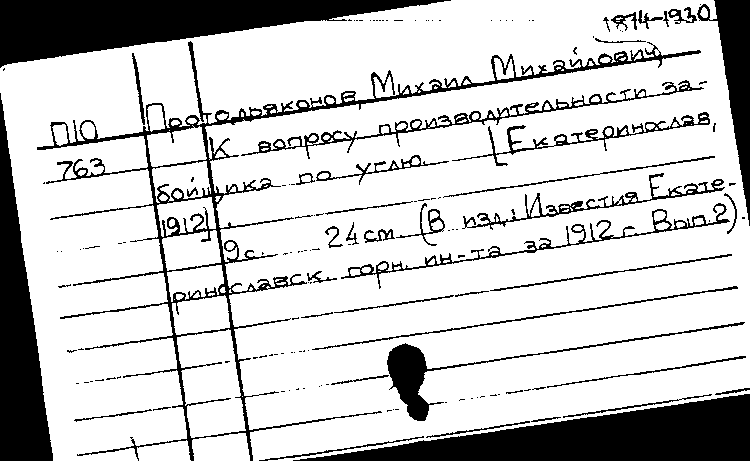 1874-1930
П10 Протодьяконов, Михаил Михайлович,
763 К вопросу производительности за-
бойщика по углю. [Екатеринослав,
1912].
9с. 24см. (В изд.: Известия Екате-
ринославск. горн. ин-та за 1912 г. Вып.2).